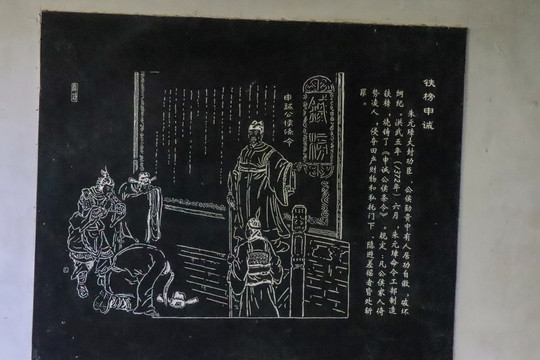 铁榜申诫
朱元璋大封功臣，公侯勋贵中有人居功自傲，破坏
纲纪。洪武五年（1372年）六月，朱元璋命令工部制造
铁榜，铸了《申诫公侯条令》。规定：凡公侯家人倚
势凌人，侵夺田产财物和私托门下，隐避差徭者皆处斩
罪。
申诫公侯条令